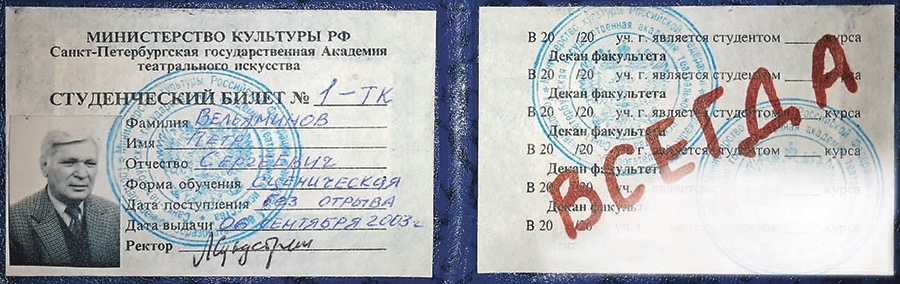 МИНИСТЕРСТВО КУЛЬТУРЫ РФ
Санкт-Петербургская государственная Академия
театрального искусства
СТУДЕНЧЕСКИЙ БИЛЕТ № 1-ТК
Фамилия ВЕЛЬЯМИНОВ
Имя ПЕТР
Отчество СЕРГЕЕВИЧ
Форма обучения СЦЕНИЧЕСКАЯ
Дата поступления БЕЗ ОТРЫВА
Дата выдачи 06 СЕНТЯБРЯ 2003 г
Ректор
В 20 /20 уч. г. является студентом ____ курса
Декан факультета
В 20 /20 уч. г. является студентом ____ курса
Декан факультета
В 20 /20 уч. г. является студентом ____ курса
Декан факультета
В 20 /20 уч. г. является студентом ____ курса
Декан факультета
В 20 /20 уч. г. является студентом ____ курса
Декан факультета
В 20 /20 уч. г. является студентом ____ курса
ВСЕГДА